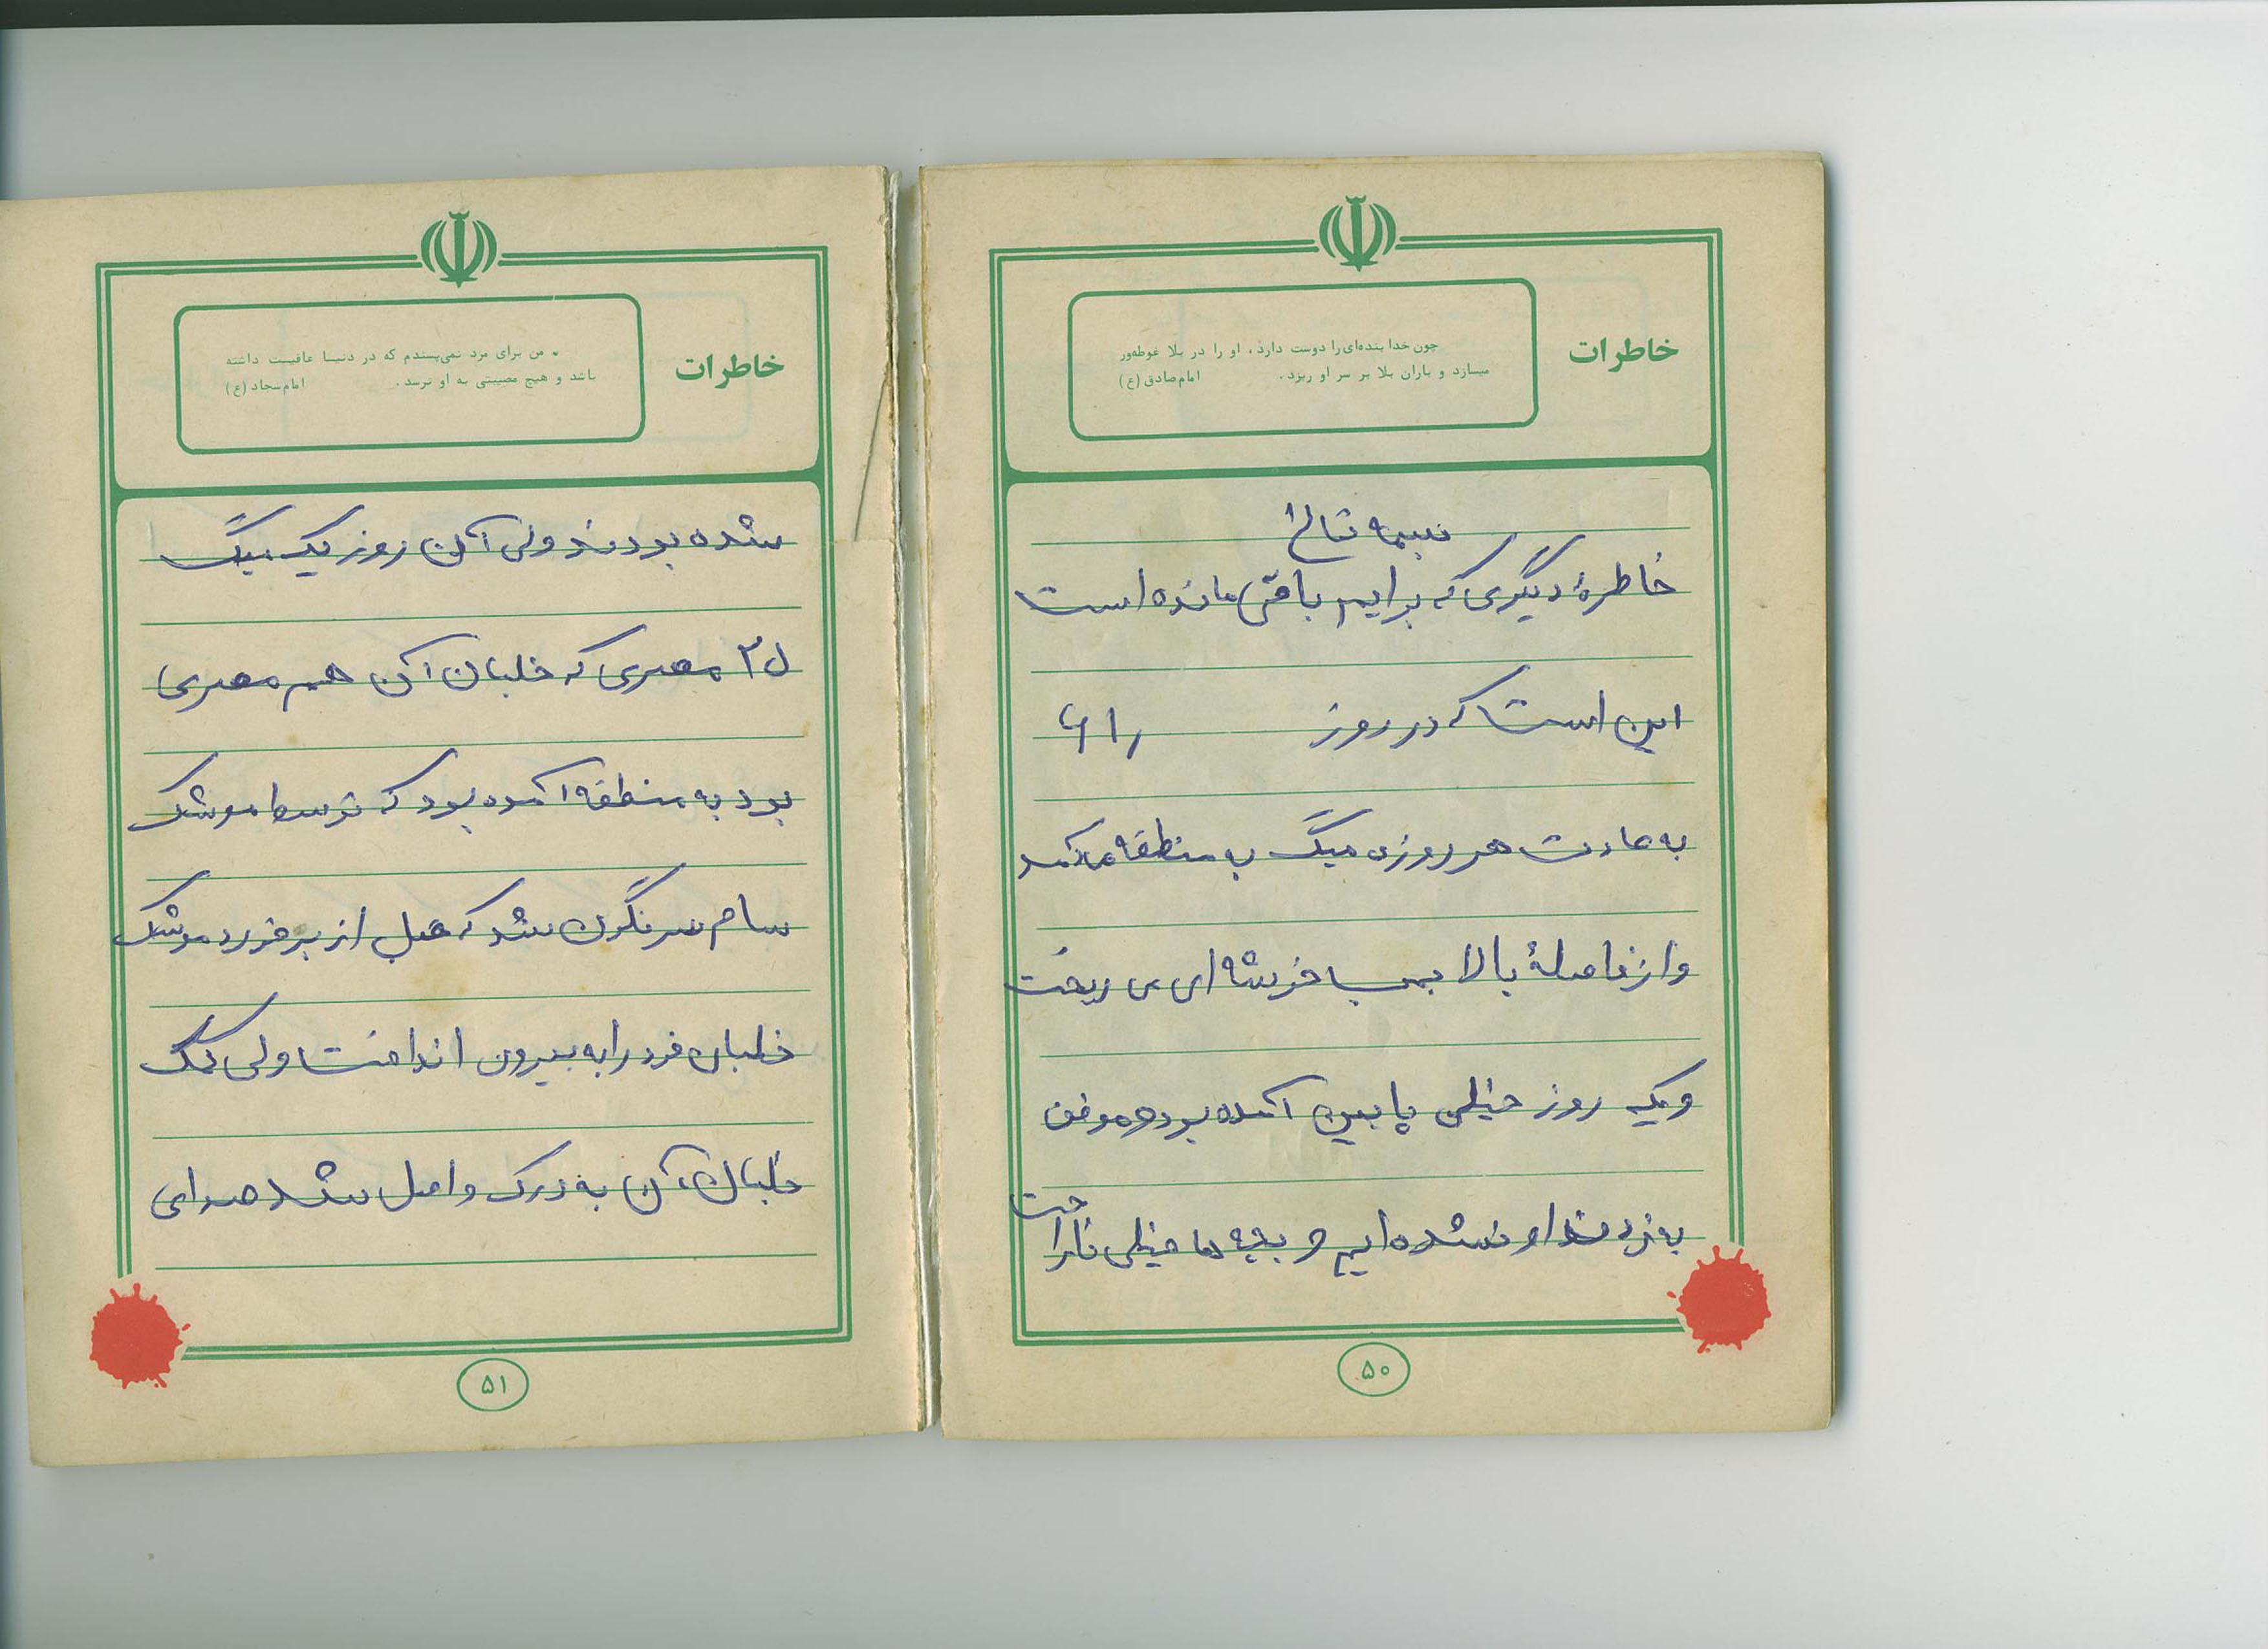 خاطرات
چون خدا بنده‌ای را دوست دارد، او را در بلا غوطه‌ور
میسازد و باران بلا بر سر او ریزد. امام صادق (ع)
بسمه تعالی
خاطرهٔ دیگری که برایم باقی مانده است
این است که در روز /۶۱
به عادت هر روزی میگ به منطقه می‌آمد
و از فاصلهٔ بالا بمب خوشه ای می ریخت
و یک روز خیلی پایین آمده بود و موفق
به زدن او نشده‌ایم و بچه ها خیلی ناراحت
۵۰
خاطرات
• من برای مرد نمی‌پسندم که در دنیا عافیت داشته
باشد و هیچ مصیبتی به او نرسد. امام سجاد (ع)
شده بودند ولی آن روز یک میگ
۲۵ مصری که خلبان آن هم مصری
بود به منطقه آمده بود که توسط موشک
سام سرنگون شد که قبل از برخورد موشک
خلبان خود را به بیرون انداخت ولی کمک
خلبان آن به درک واصل شد صدای
۵۱